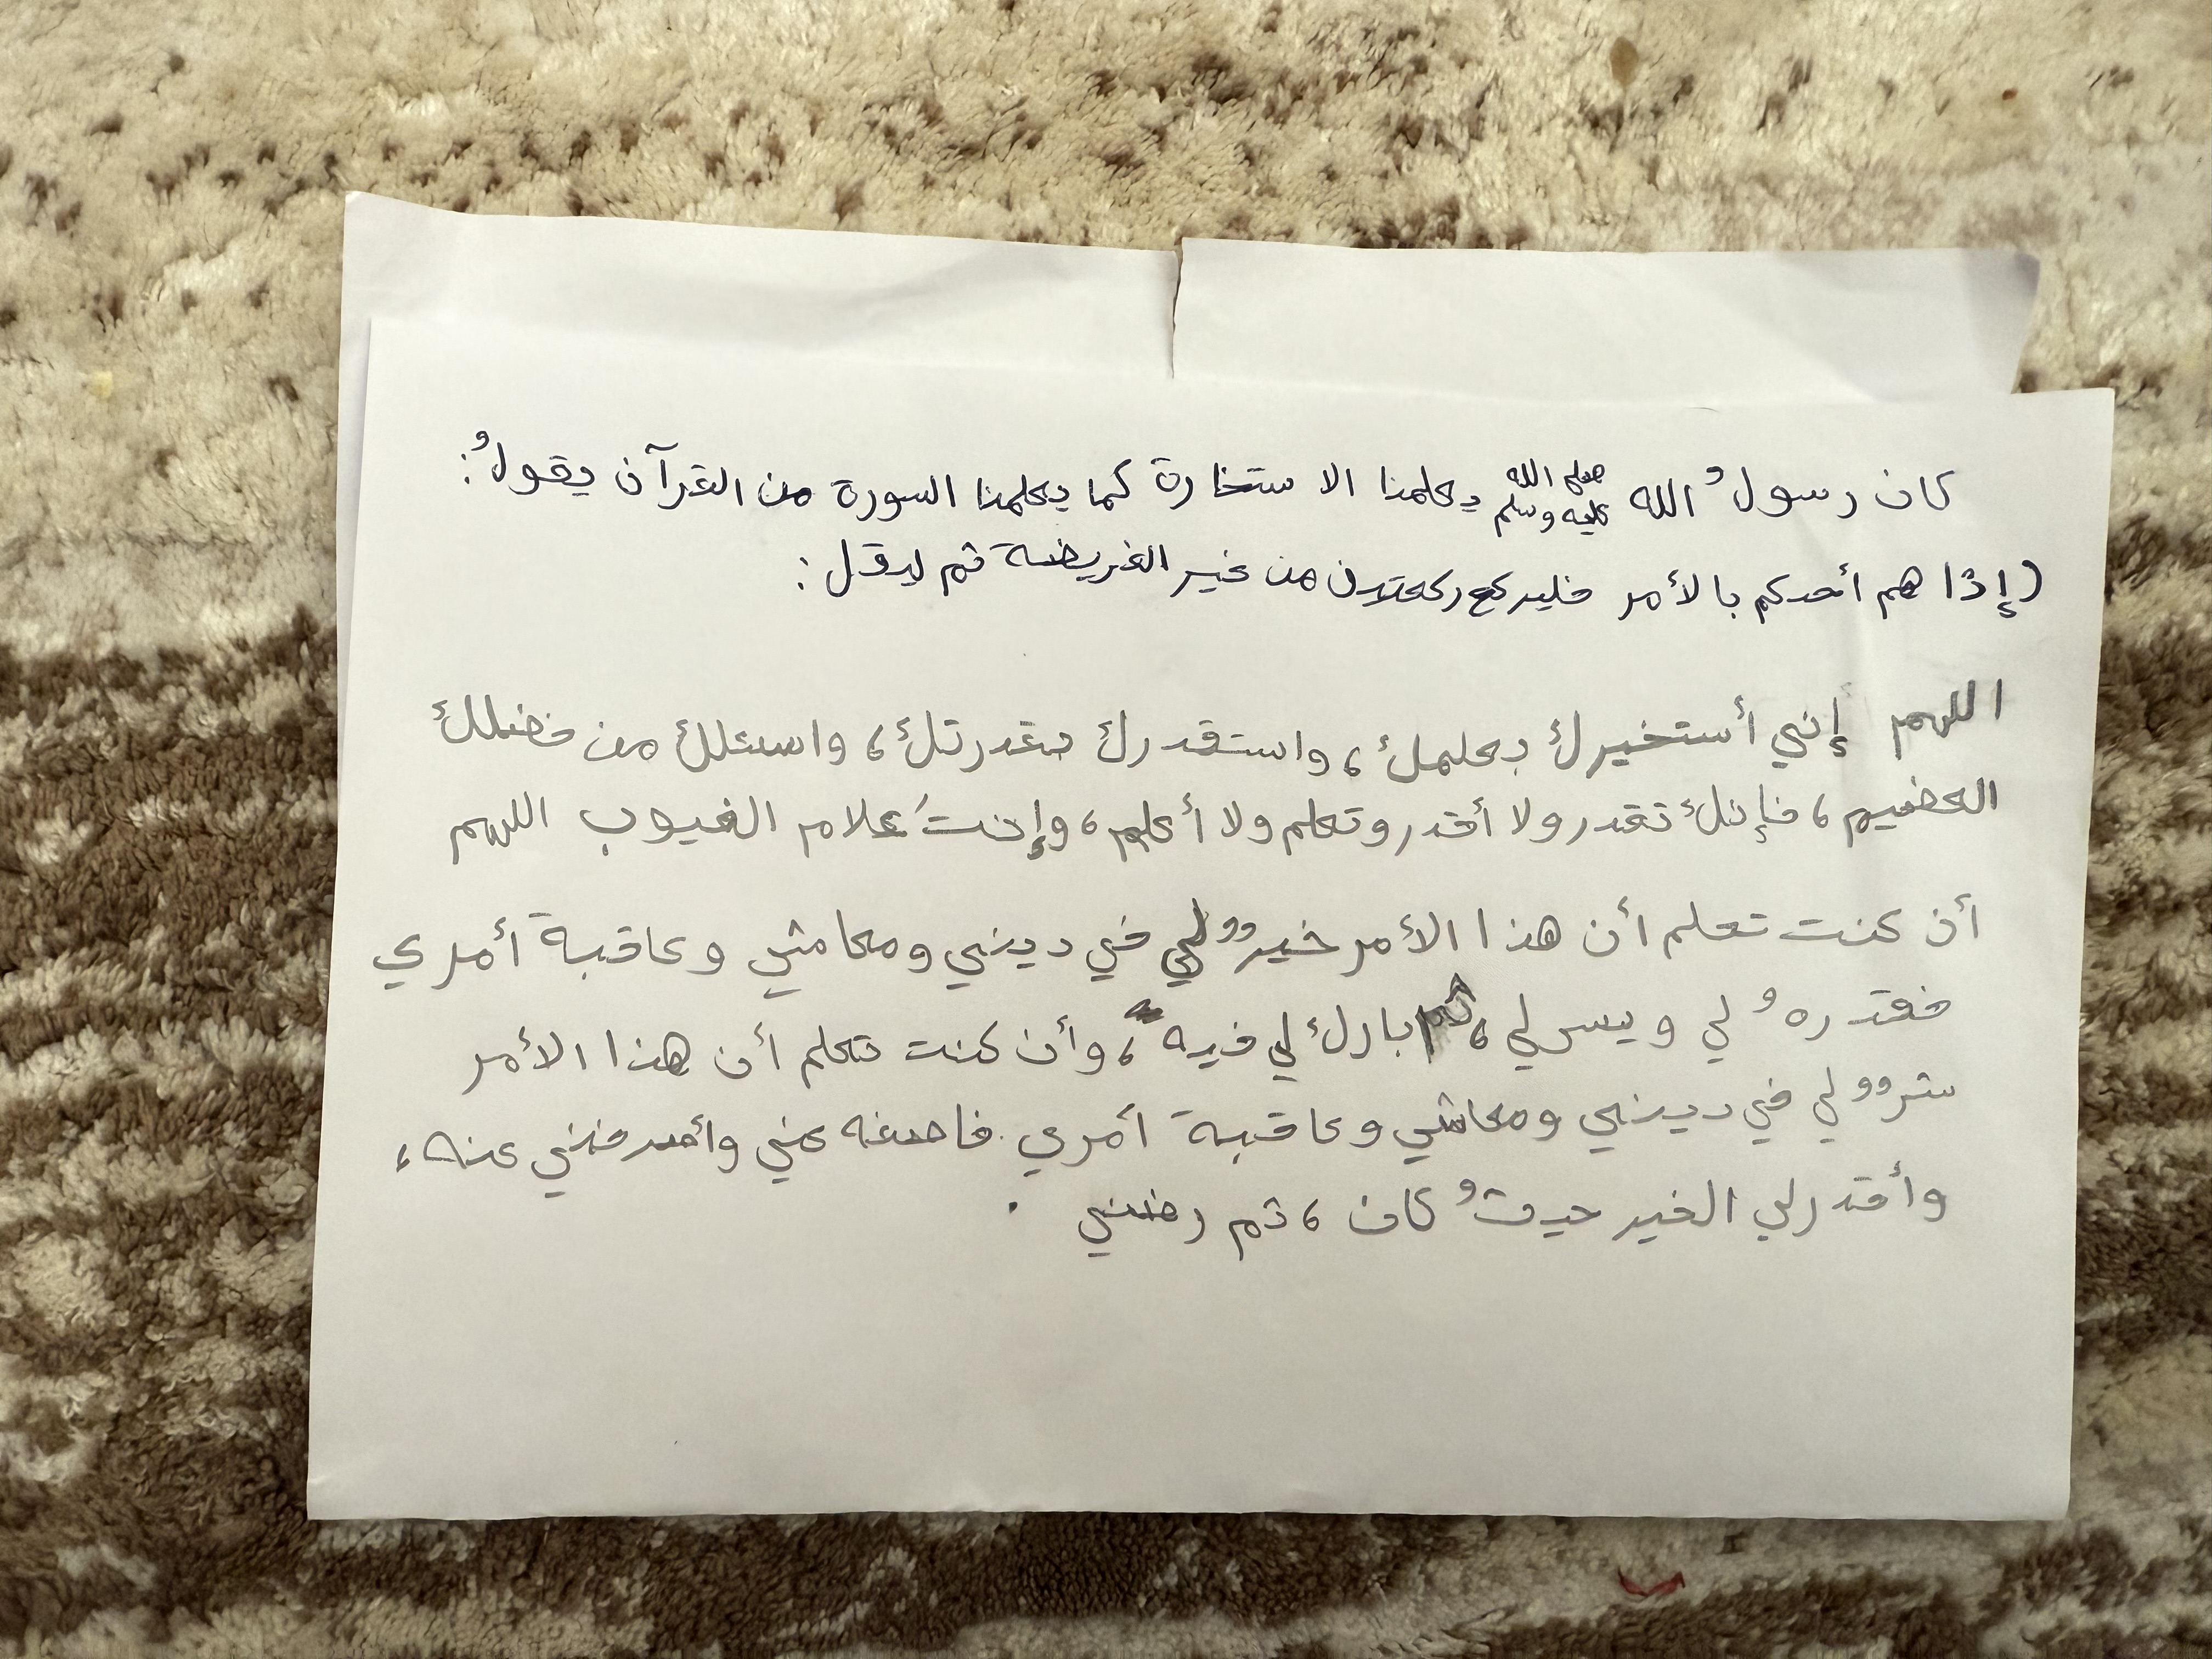 كان رسولُ الله صلى الله عليه وسلم يعلمنا الاستخارة كما يعلمنا السورة من القرآن يقولُ:
(إذا هم أحدكم بالأمر فليركع ركعتين من غير الفريضة ثم ليقل:
اللهم إني أستخيرك بعلمك، واستقدرك بقدرتك، واسئلك من فضلك
العضيم، فإنك تقدر ولا أقدر وتعلم ولا أعلم، وإنتَ علام الغيوب اللهم
أن كنت تعلم أن هذا الأمر خيرٌ لي في ديني ومعاشي وعاقبة أمري
فقدرهُ لي ويسر لي، ثم بارك لي فيه، وأن كنت تعلم أن هذا الأمر
شرٌ لي في ديني ومعاشي وعاقبة أمري. فاصفه عني وأصرفني عنه،
وأقدر لي الخير حيثُ كان، ثم رضني.